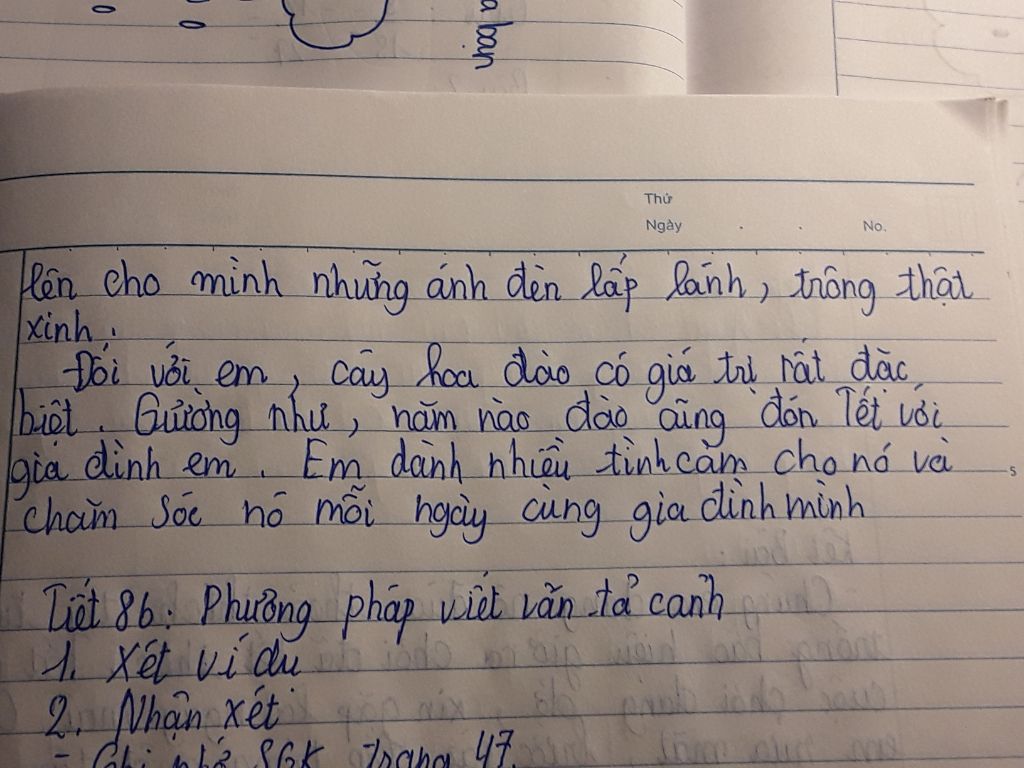 a bạn
Thứ
Ngày . . No.
lên cho mình những ánh đèn lấp lánh, trông thật
xinh.
Đối với em, cây hoa đào có giá trị rất đặc
biệt. Gường như, năm nào đào cũng đón Tết với
gia đình em. Em dành nhiều tình cảm cho nó và
5
chăm sóc nó mỗi ngày cùng gia đình mình
Tiết 86: Phương pháp viết văn tả cảnh
1. Xét ví dụ
2. Nhận xét
- Ghi nhớ SGK trang 47.